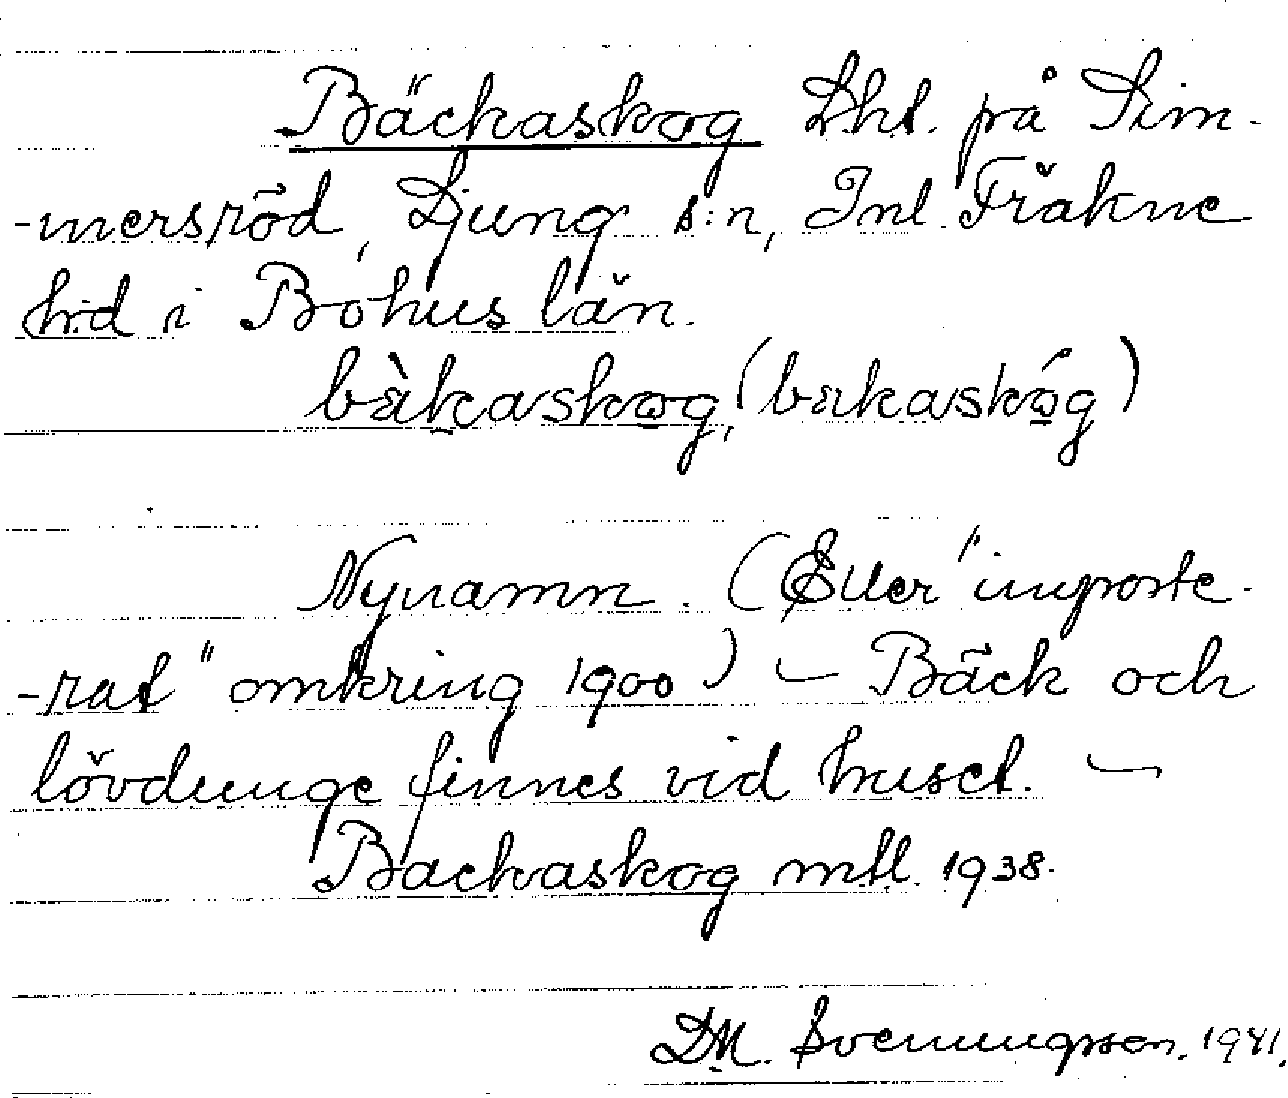 Bäckaskog Lht. på Sim-
-mersröd, Ljung s:n, Inl. Fräkne
hd i Bohus län.
bàkaskog, (bakaskóg)
Nynamn. (Eller "importe-
-rat" omkring 1900) – Bäck och
lövdunge finnes vid huset. –
Backaskog mtl. 1938.
DM. Svenningsson. 1941.